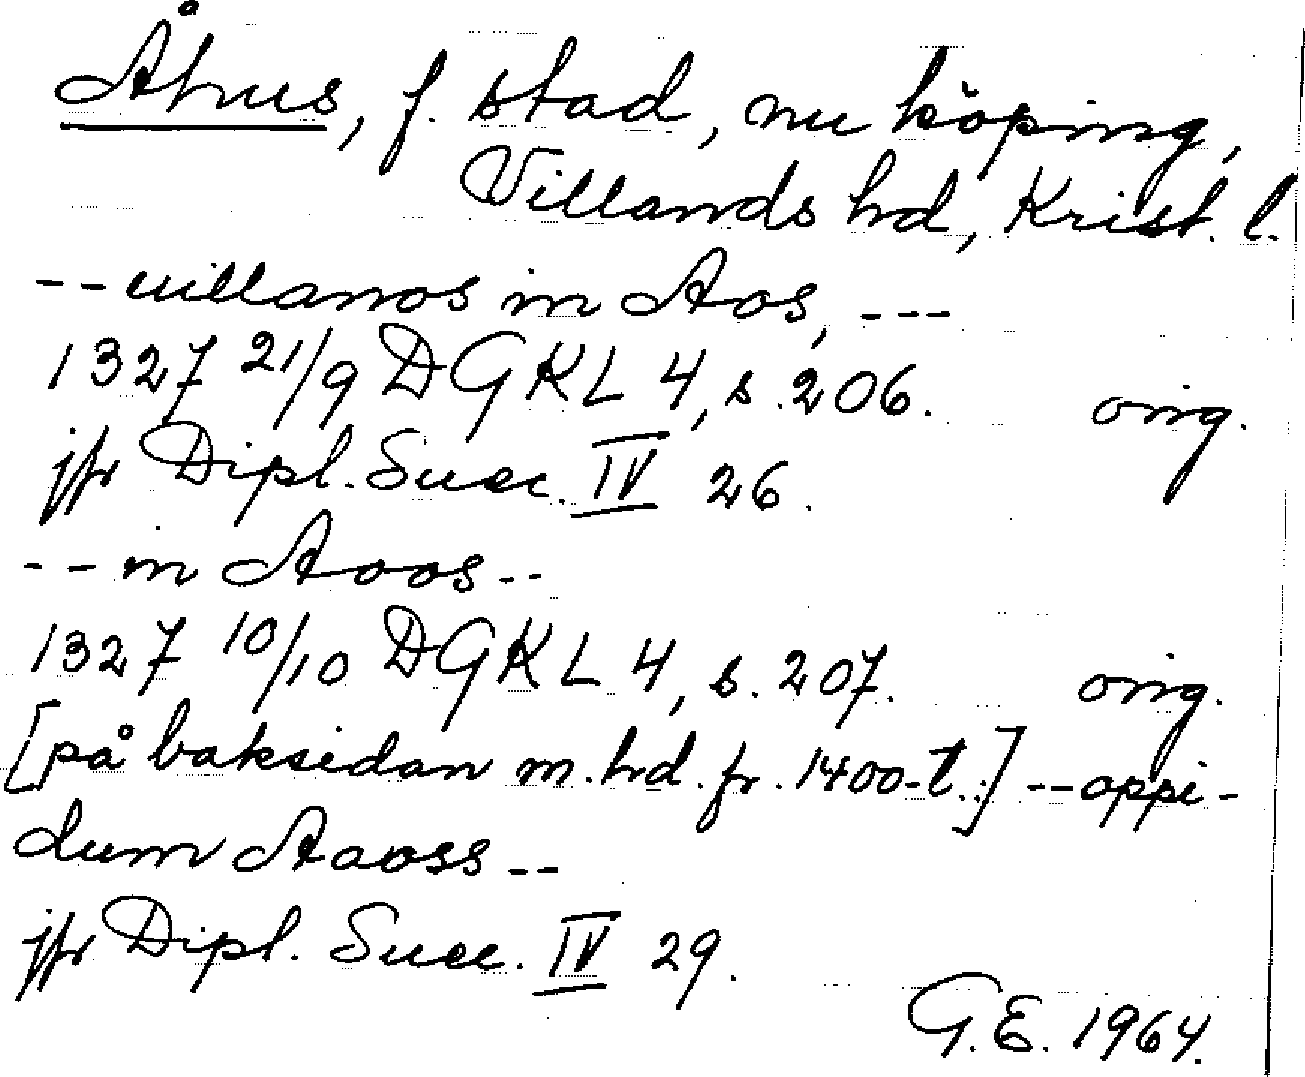 Åhus, f. stad, nu köping,
Villands hd, Krist. l.
-- uillanos in Aos, ---
1327 21/9 DGKL 4, s. 206. orig.
jfr Dipl. Suec. IV 26.
-- in Aoos --
1327 10/10 DGKL 4, s. 207. orig.
[på baksidan m. hd. fr. 1400-t.:] -- oppi-
dum Aaoss --
jfr Dipl. Suec. IV 29.
G.E. 1964.